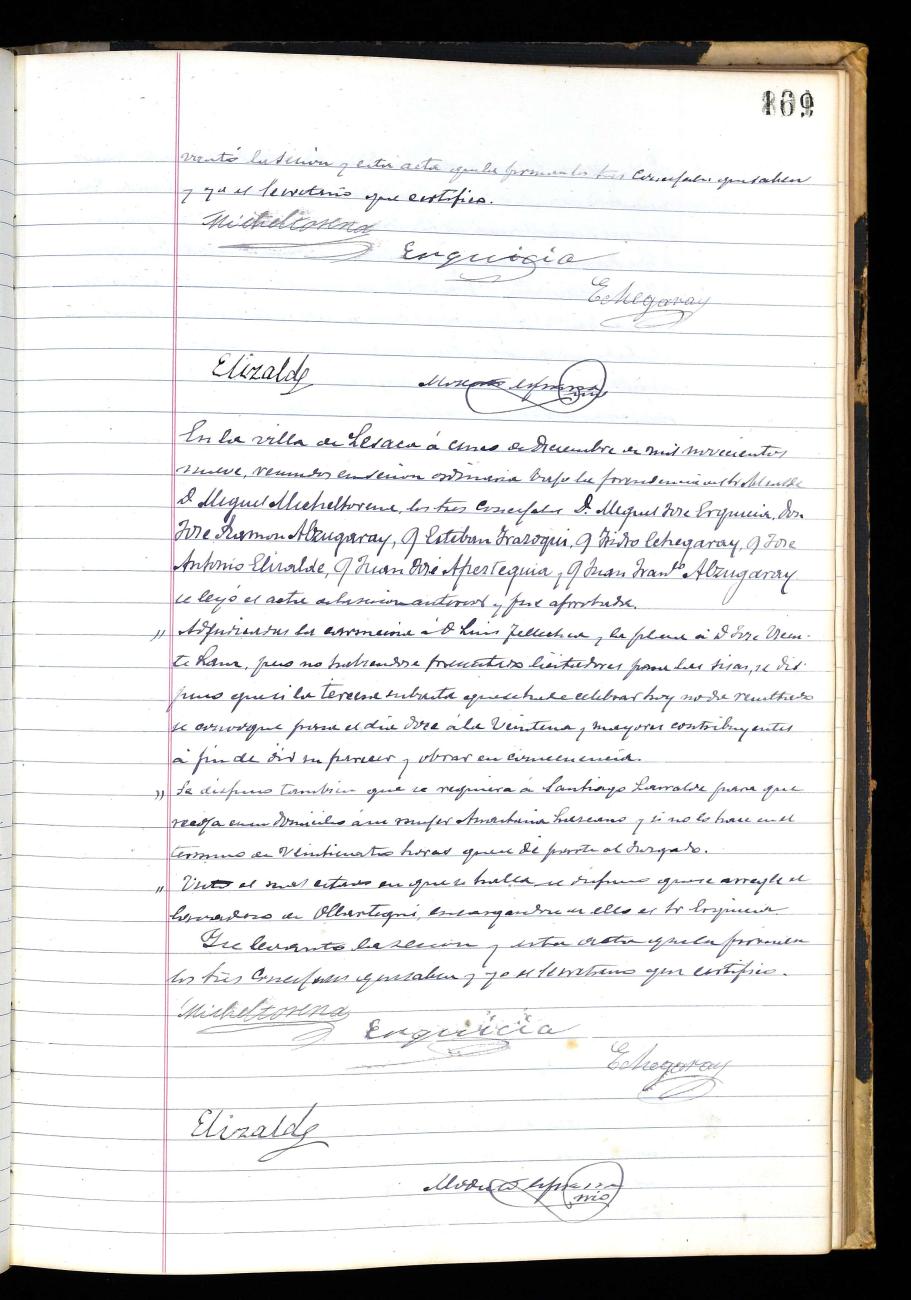 169
vantó la sesión y esta acta que la firman los tres Concejales que saben
y yo el Secretario que certifico.
Micheltorena
Erquicia
Echegaray
Elizalde
Modesto
En la villa de Lesaca á cinco de Diciembre de mil novecientos
nueve, reunidos en sesion ordinaria bajo la presidencia del Sr Alcalde
D. Miguel Micheltorena, los tres Concejales D. Miguel Jose Erquicia, Don
Jose Ramon Alzugaray, D Esteban Irazoqui, D Isidro Echegaray, D Jose
Antonio Elizalde, D Juan José Apesteguia y D Juan Franco Alzugaray
se leyó el acta de la sesion anterior y fué aprobada.
" Adjudicadas la carniceria á D Luis Tellechea y la plaza á D Jose Vicen-
te Sanz, pero no habiendose presentado licitadores para las sisas, se dis-
puso que si la tercera subasta que se ha de celebrar hoy no da resultado
se convoque para el dia doce á la Veintena y mayores contribuyentes
á fin de oir su parecer y obrar en consecuencia.
" Se dispuso tambien que se requiera á Santiago Larralde para que
recoja en su domicilio á su mujer y si no lo hace en el
termino de Veinticuatro horas que se dé parte al Juzgado.
" Visto el mal estado en que se halla se dispuso que se arregle el
lavadero de encargandose de ello el Sr Erquicia.
Y se levanto la sesion y esta acta que la firman
los tres Concejales que saben y yo el Secretario que certifico.
Micheltorena
Erquicia
Echegaray
Elizalde
Modesto